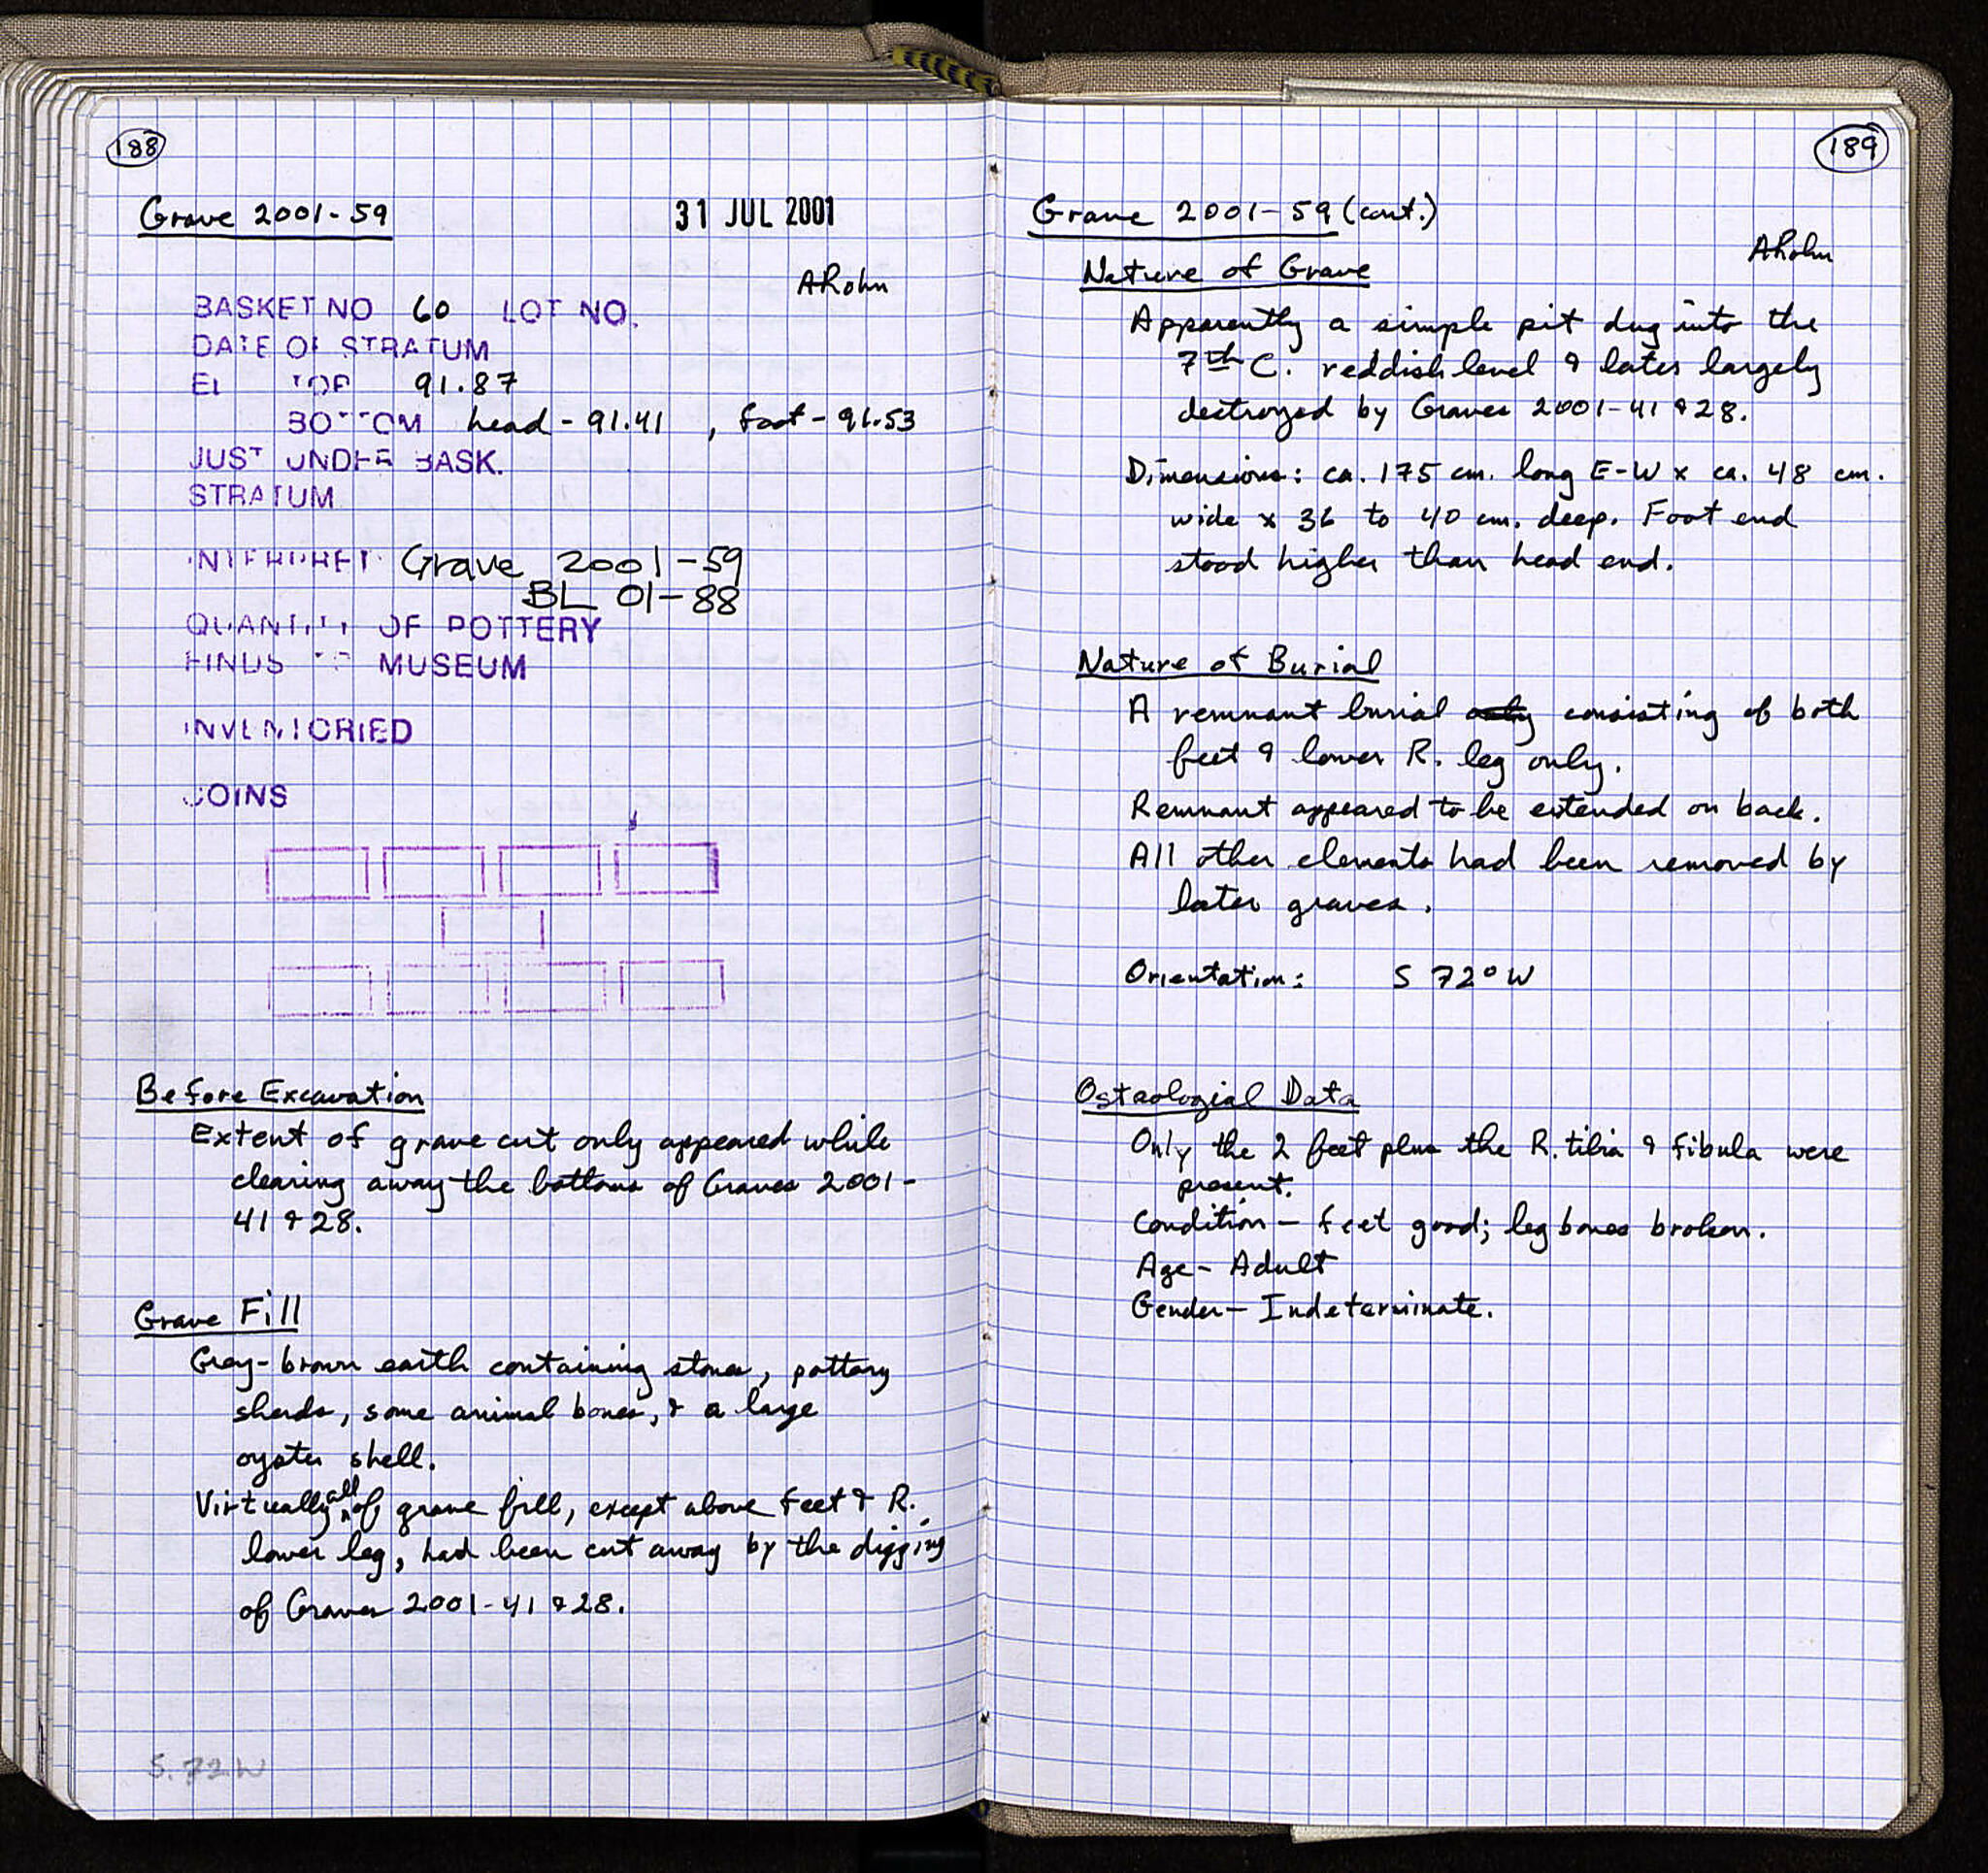 188
Grave 2001-59
31 JUL 2001
ARohn
BASKET NO 60 LOT NO.
DATE OF STRATUM
EL TOP 91.87
BOTTOM head - 91.41 , foot - 91.53
JUST UNDER BASK.
STRATUM
INTERPRET. Grave 2001-59
BL 01-88
QUANTITY OF POTTERY
FINDS TO MUSEUM
INVENTORIED
COINS
Before Excavation
Extent of grave cut only appeared while
clearing away the bottoms of Graves 2001-
41 & 28.
Grave Fill
Gray-brown earth containing stones, pottery
sherds, some animal bones, & a large
oyster shell.
Virtually all of grave fill, except above feet & R.
lower leg, had been cut away by the digging
of Graves 2001-41 & 28.
S. 72 W
189
Grave 2001-59 (cont.)
ARohn
Nature of Grave
Apparently a simple pit dug into the
7th C. reddish level & later largely
destroyed by Graves 2001-41 & 28.
Dimensions: ca. 175 cm. long E-W x ca. 48 cm.
wide x 36 to 40 cm. deep. Foot end
stood higher than head end.
Nature of Burial
A remnant burial only consisting of both
feet & lower R. leg only.
Remnant appeared to be extended on back.
All other elements had been removed by
later graves.
Orientation: S 72° W
Osteological Data
Only the 2 feet plus the R. tibia & fibula were
present.
Condition - feet good; leg bones broken.
Age - Adult
Gender - Indeterminate.